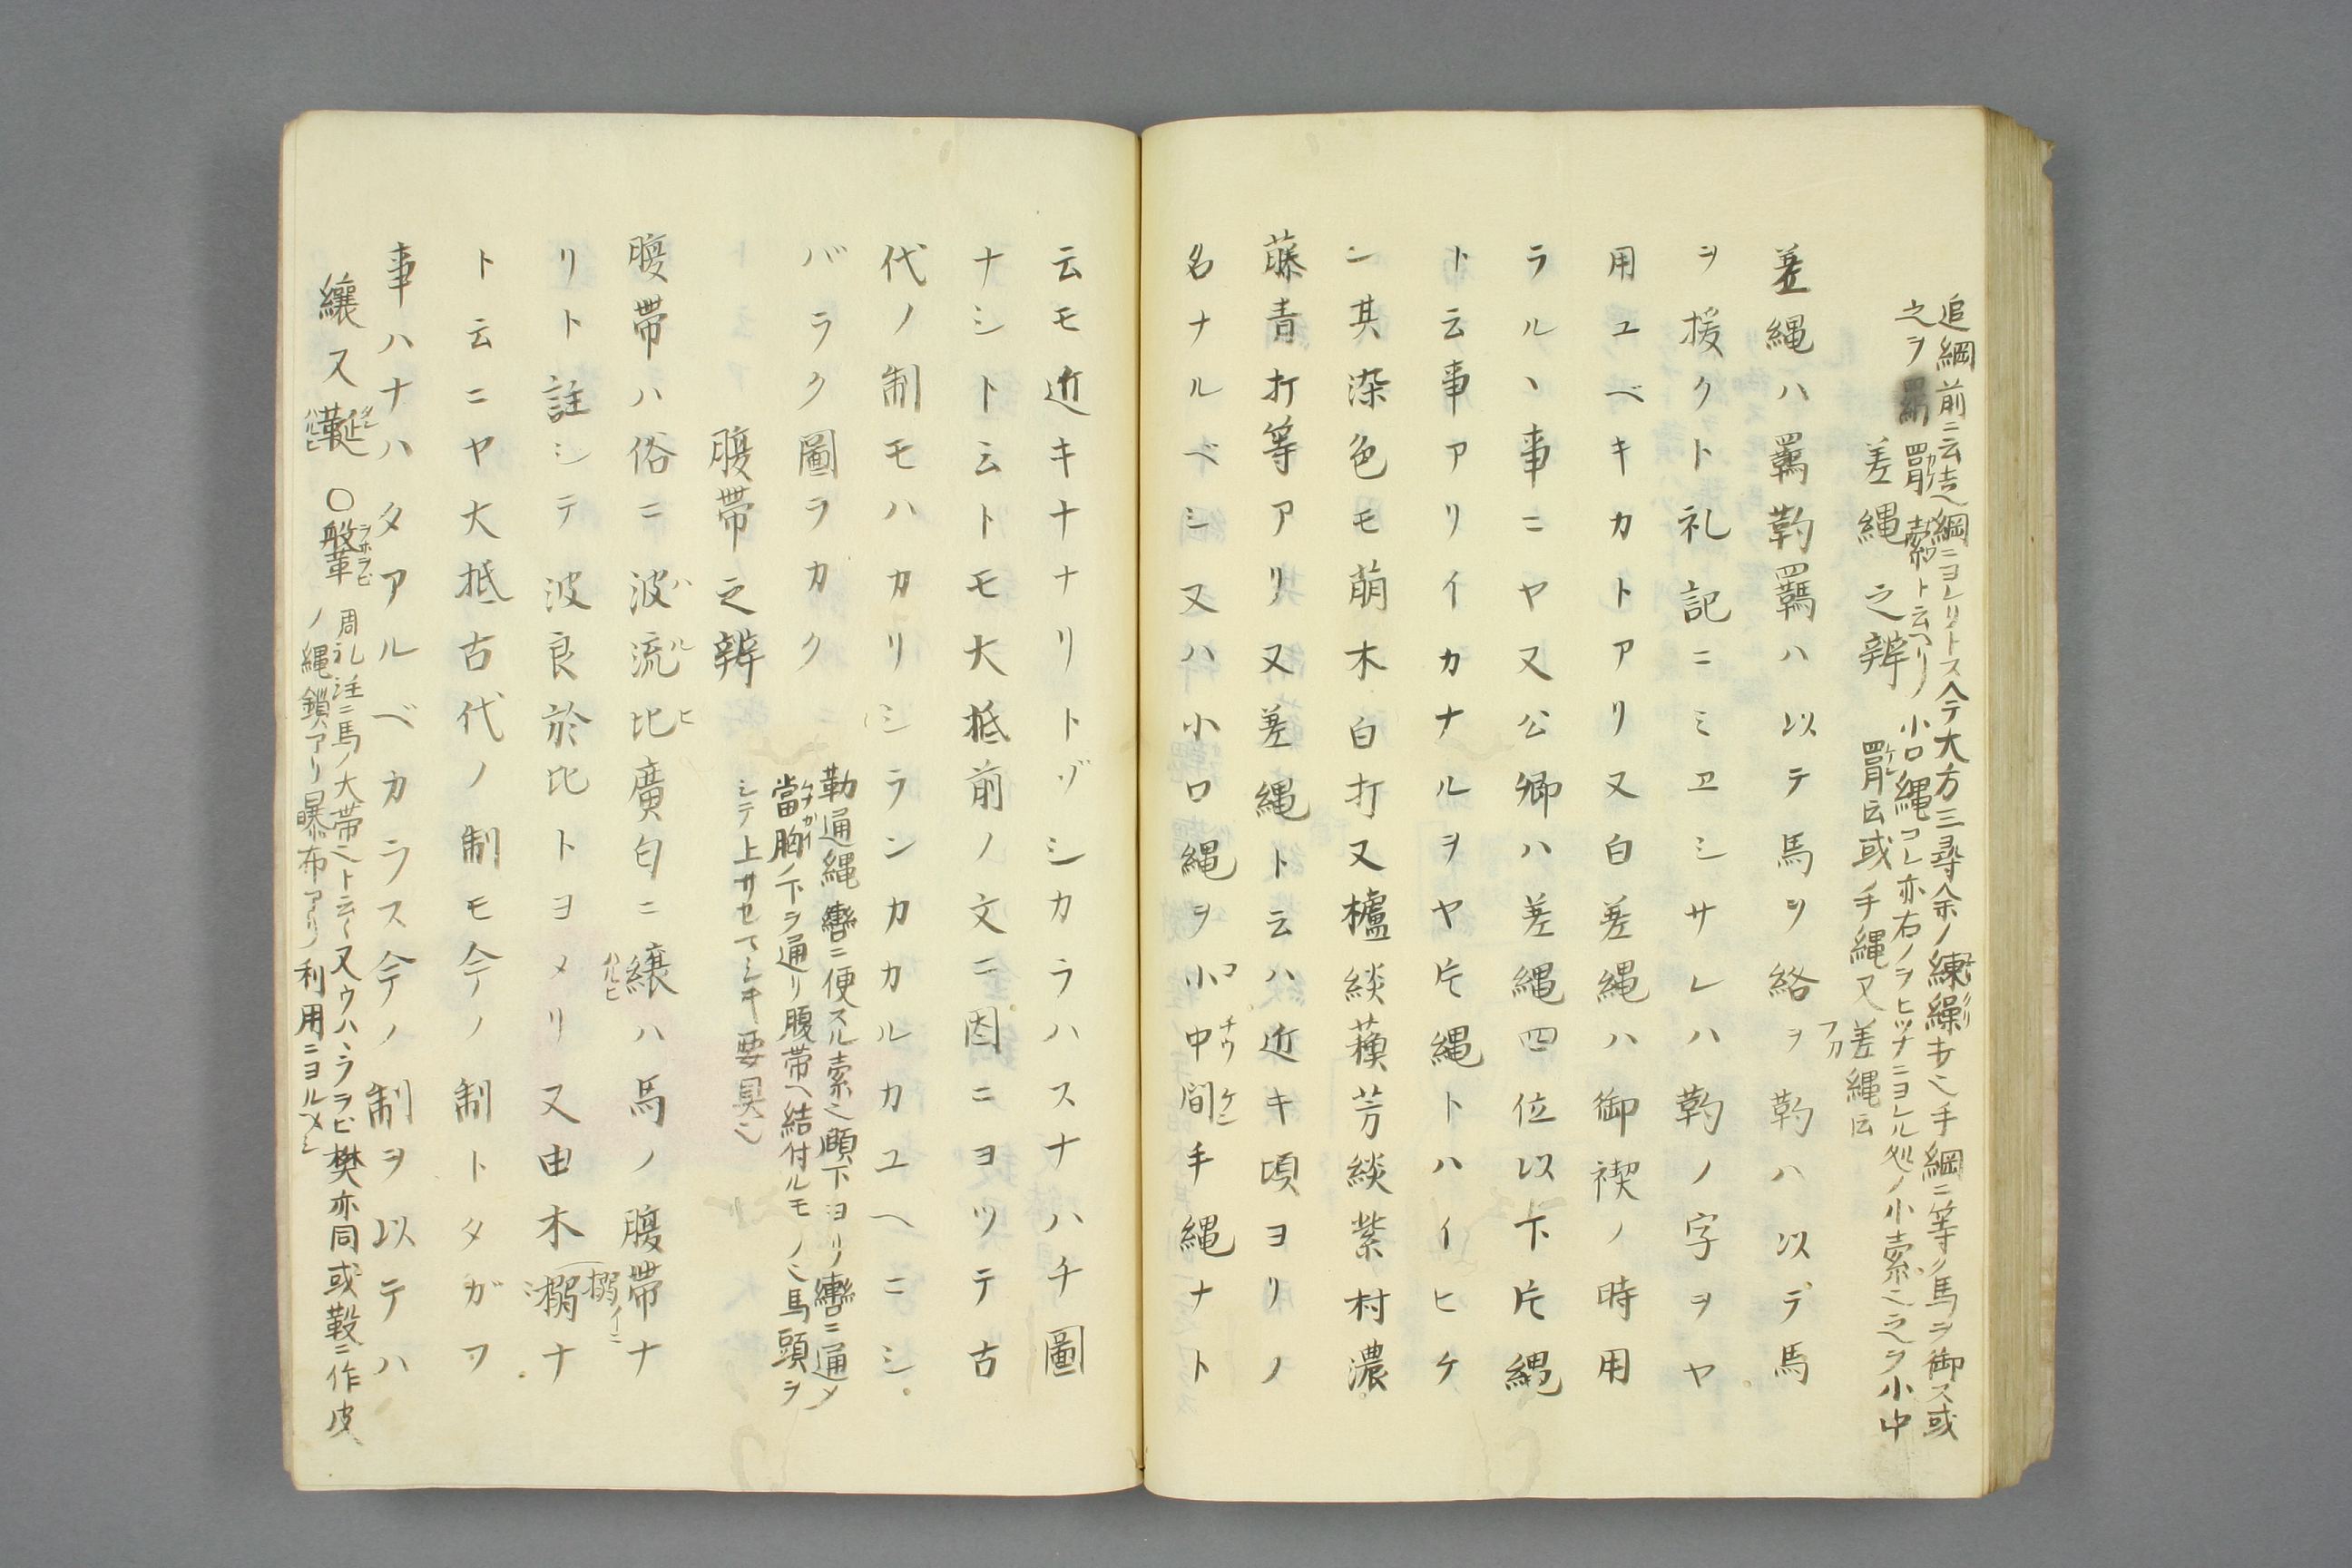 追綱前ニ云追綱ニヨレリトス今大方三尋余ノ練繰キ手綱ニ等ク馬ヲ御ス或
之ヲ 罥索ト云ヘリノ小口縄コレ亦右ノヲヒツナニヨレル処ノ小索之ヲ小中
差縄之辨 罥云或手縄又差縄云
差縄ハ羈靮羈ハ以テ馬ヲ絡ヲ靮ハ以デ馬
ヲ援クト礼記ニミヱシサレハ靮ノ字ヲヤ
用ユベキカトアリ又白差縄ハ御禊ノ時用
ラルヽ事ニヤ又公卿ハ差縄四位以下片縄
ト云事アリイカナルヲヤ片縄トハイヒケ
ン其染色モ萠木白打又櫨緂蘓芳緂紫村濃
藤青打等アリ又差縄ト云ハ近キ頃ヨリノ
名ナルベシ又ハ小口縄ヲ小中間手縄ナト
云モ近キナナリトゾシカラハスナハチ圖
ナシト云トモ大抵前ノ文ニ因ニヨツテ古
代ノ制モハカリシランカカルカユヘニシ
バラク圖ラカク
勒通縄轡ニ便スル索頤下ヨリ轡ニ通メ
當胸ノ下ヲ通リ腹帯ヘ結付ルモノ馬頭ヲ
シテ上サセマシキ要具
腹帯之辨
腹帯ハ俗ニ波流比廣匂ニ纕ハ馬ノ腹帯ナ
リト註シテ波良於比トヨメリ又由木㯙ナ
ト云ニヤ大抵古代ノ制モ今ノ制トタガフ
事ハナハタアルベカラス今ノ制ヲ以テハ
纕又鞓 〇鞶 周礼注ニ馬ノ大帯ト云又ウハヽラヲビ樊亦同或鞶ニ作皮
ノ縄鎖アリ曝布アリ利用ニヨルヘシ